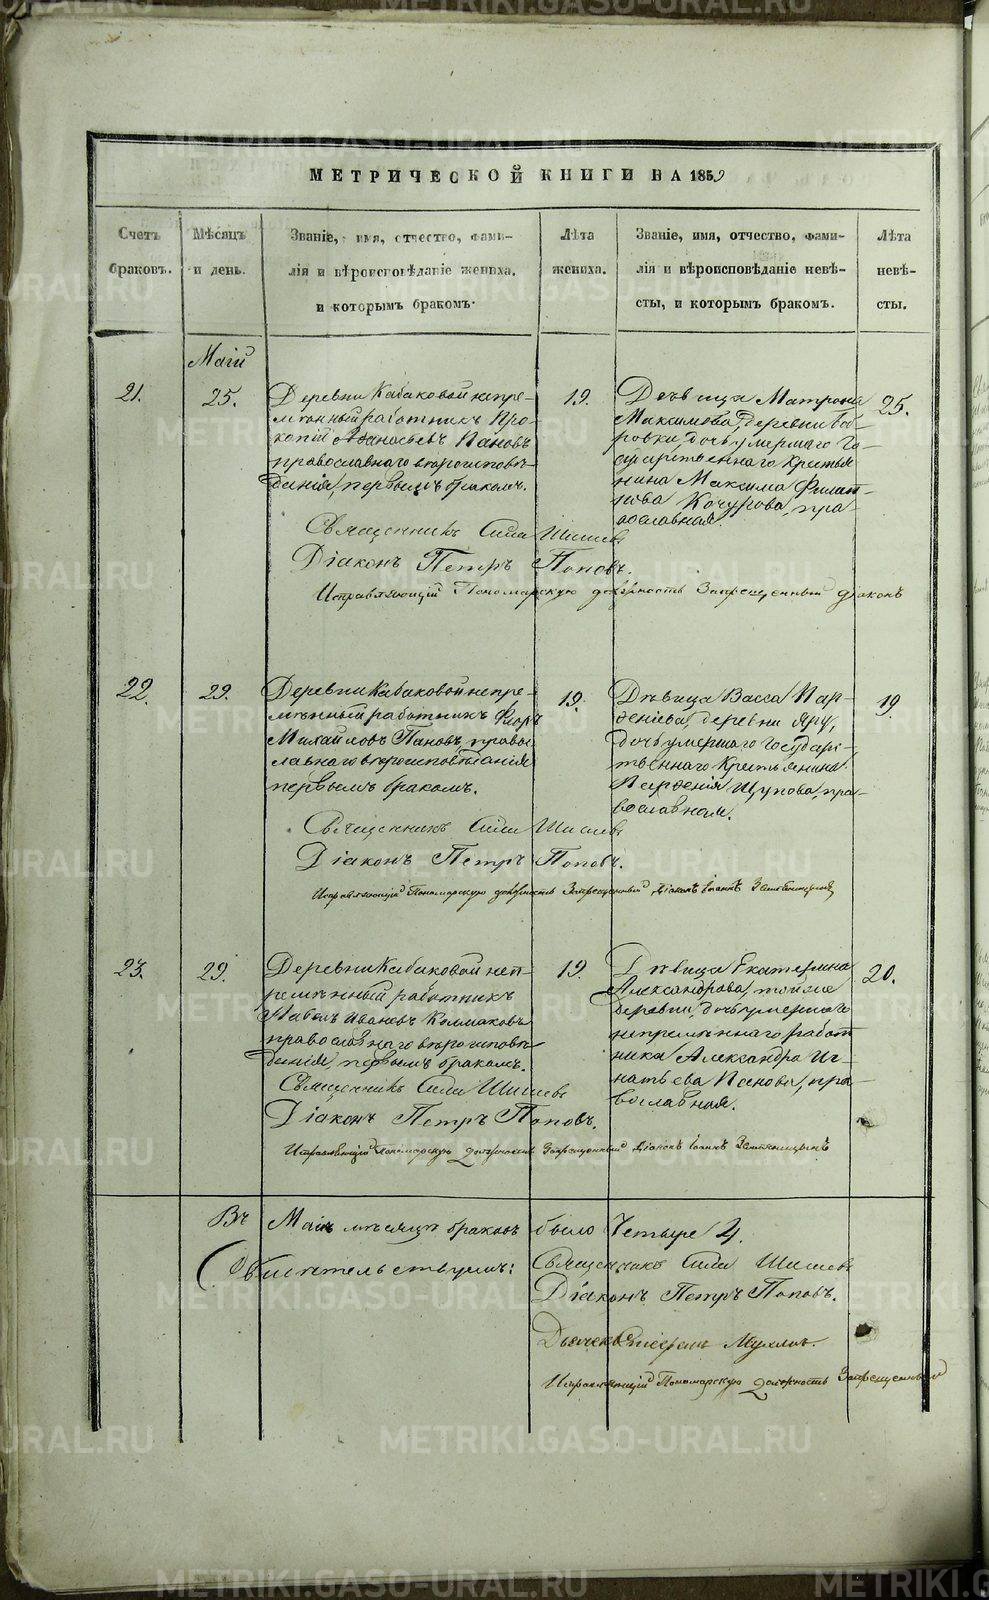 МЕТРИЧЕСКОЙ КНИГИ НА 1859
Счетъ
браковъ.
Мѣсяцъ
и день.
Званіе, имя, отчество, фами-
лія и вѣроисповѣданіе жениха,
и которымъ бракомъ.
Лѣта
жениха.
Званіе, имя, отчество, фами-
лія и вѣроисповѣданіе невѣ-
сты, и которымъ бракомъ.
Лѣта
невѣ-
сты.
Маій
21.
25.
Деревни Кабаковой непре-
мѣнный работникъ Про-
копій Афанасьевъ Пановъ
православнаго вѣроисповѣ-
данія, первымъ бракомъ.
19.
Дѣвица Матрона
Максимова, деревни Боб-
ровки, дочь умершаго Го-
сударственнаго Крестья
нина Максима Филат-
пра-
вославная.
25.
Священникъ Сила Шишевъ
Діаконъ Петръ Поповъ.
Исправляющій Пономарскую должность Запрещенный діаконъ
22.
29.
Деревни Кабаковой непре-
мѣнный работникъ Флоръ
Михайловъ Пановъ, право
славнаго вѣроисповѣданія
первымъ бракомъ.
19.
Дѣвица Васса Пар-
ѳеніева деревни Яру,
дочь умершаго Государ-
ственнаго Крестьянина
Парѳенія Щупова, пра-
вославная.
19.
Священникъ Сила Шишевъ
Діаконъ Петръ Поповъ.
Исправляющій Пономарскую должность Запрещенный Діаконъ Іоаннъ
23.
29.
Деревни Кабаковой неп-
ремѣнный работникъ
Павелъ Ивановъ Колмаковъ
православнаго вѣроисповѣ-
данія, первымъ бракомъ.
19.
Дѣвица Екатерина
Александрова, тойже
деревни, дочь умершаго
непремѣннаго работ
ника Александра Иг-
натьева Панова, пра-
вославная.
20.
Священникъ Сила Шишевъ
Діаконъ Петръ Поповъ.
Исправляющій Пономарскую должность Запрещенный Діаконъ Іоаннъ
Въ Маіѣ мѣсяцѣ браковъ было Четыре 4.
Свидѣтельствуемъ:
Священникъ Сила Шишевъ
Діаконъ Петръ Поповъ.
Дьячекъ
Исправляющій Пономарскую должность Запрещенный
METRIKI.GASO-URAL.RU